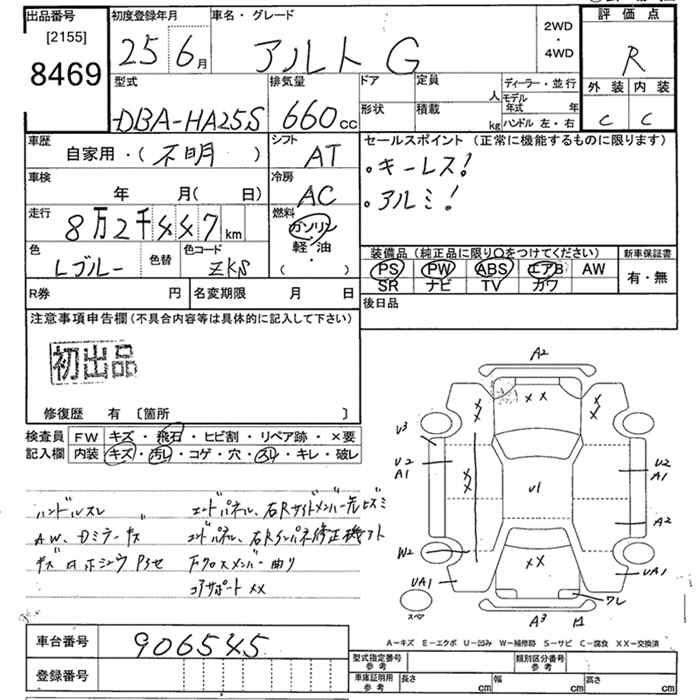 出品番号
[2155]
8469
初度登録年月
25 6月
車名・グレード
アルト G
2WD
・
4WD
評価点
R
外装 内装
C C
型式
DBA-HA25S
排気量
660cc
ドア
定員
人
形状
積載
kg
ディーラー・並行
モデル年式 年
ハンドル 左・右
車歴
自家用・(不明)
シフト
AT
車検
年 月( 日)
冷房
AC
走行
8万2千447km
燃料
ガソリン
軽・油
・
( )
色
Lブルー
色替
色コード
ZKS
セールスポイント(正常に機能するものに限ります)
・キーレス!
・アルミ!
装備品(純正品に限り○をつけてください)
PS PW ABS エアB AW
SR ナビ TV カワ
新車保証書
有・無
R券 円
名変期限 月 日
後日品
注意事項申告欄(不具合内容等は具体的に記入して下さい)
初出品
修復歴 有 〔箇所 〕
検査員
記入欄
FW キズ・飛石・ヒビ割・リペア跡・×要
内装 キズ・汚レ・コゲ・穴・スレ・キレ・破レ
ハンドルスレ
エンドパネル、右Rサイドメンバー先ヒズミ
エンドパネル、右Rインパネ修正機アト
Fクロスメンバー曲り
コアサポート XX
A2
XX
XX
XX
V3
U2
A1
XX
U1
U2
A1
A2
W2
XX
UA1
UA1
ワレ
スペア
A3
A-キズ E-エクボ U-凹み W-補修跡 S-サビ C-腐食 XX-交換済
車台番号
906545
登録番号
型式指定番号
参考
類別区分番号
参考
車庫証明用
参考
長さ cm
幅 cm
高さ cm